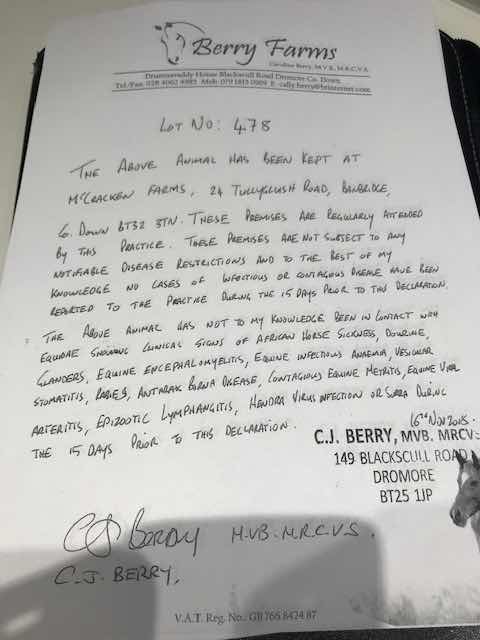 Berry Farms
Caroline Berry, M.V.B., M.R.C.V.S.
House Blackscull Road Dromore Co. Down
LOT NO: 478
THE ABOVE ANIMAL HAS BEEN KEPT AT
McCRACKEN FARMS, 24 TULLYGLUSH ROAD, BANBRIDGE,
Co. DOWN BT32 3TN. THESE PREMISES ARE REGULARLY ATTENDED
BY THIS PRACTICE. THESE PREMISES ARE NOT SUBJECT TO ANY
NOTIFIABLE DISEASE RESTRICTIONS AND TO THE BEST OF MY
KNOWLEDGE NO CASES OF INFECTIOUS OR CONTAGIOUS DISEASE HAVE BEEN
REPORTED TO THE PRACTICE DURING THE 15 DAYS PRIOR TO THIS DECLARATION.
THE ABOVE ANIMAL HAS NOT TO MY KNOWLEDGE BEEN IN CONTACT WITH
EQUIDAE SHOWING CLINICAL SIGNS OF AFRICAN HORSE SICKNESS, DOURINE,
GLANDERS, EQUINE ENCEPHALOMYELITIS, EQUINE INFECTIOUS ANAEMIA, VESICULAR
STOMATITIS, RABIES, ANTHRAX BORNA DISEASE, CONTAGIOUS EQUINE METRITIS, EQUINE VIRAL
ARTERITIS, EPIZOOTIC LYMPHANGITIS, HENDRA VIRUS INFECTION OR SURRA DURING
THE 15 DAYS PRIOR TO THIS DECLARATION.
C.J. BERRY, MVB. MRCVS
149 BLACKSCULL ROAD
DROMORE
BT25 1JP
CJ Berry M.V.B. M.R.C.V.S.
C.J. BERRY.
V.A.T. Reg. No.: GB 766 8424 87